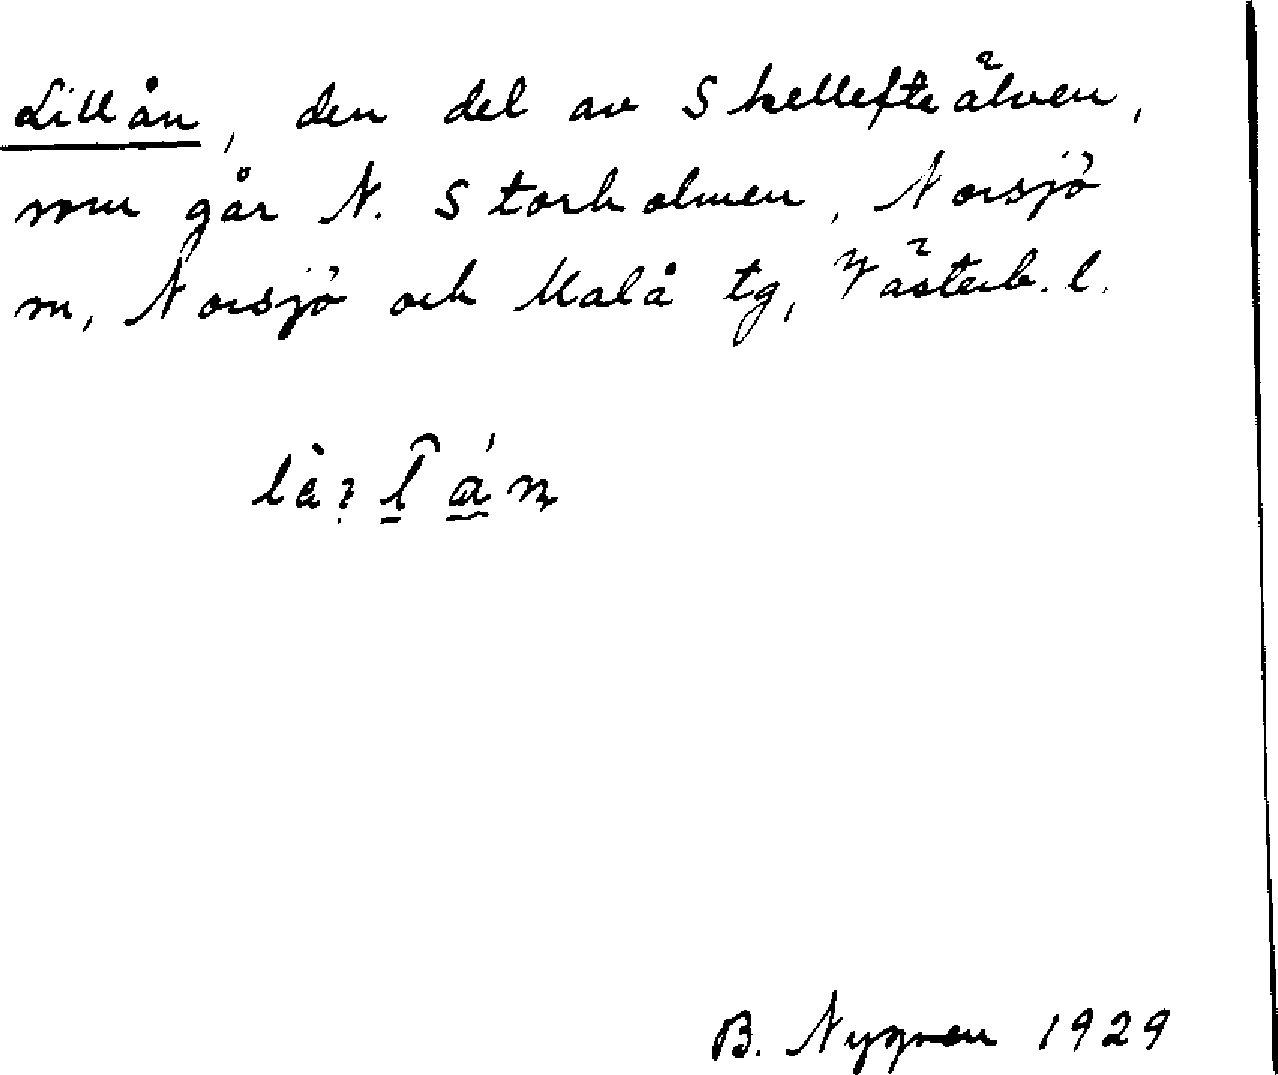 Lillån, den del av Skellefteälven,
som går N. Storholmen, Norsjö
m, Norsjö och Malå tg, Västerb. l.
B. Nygren 1929